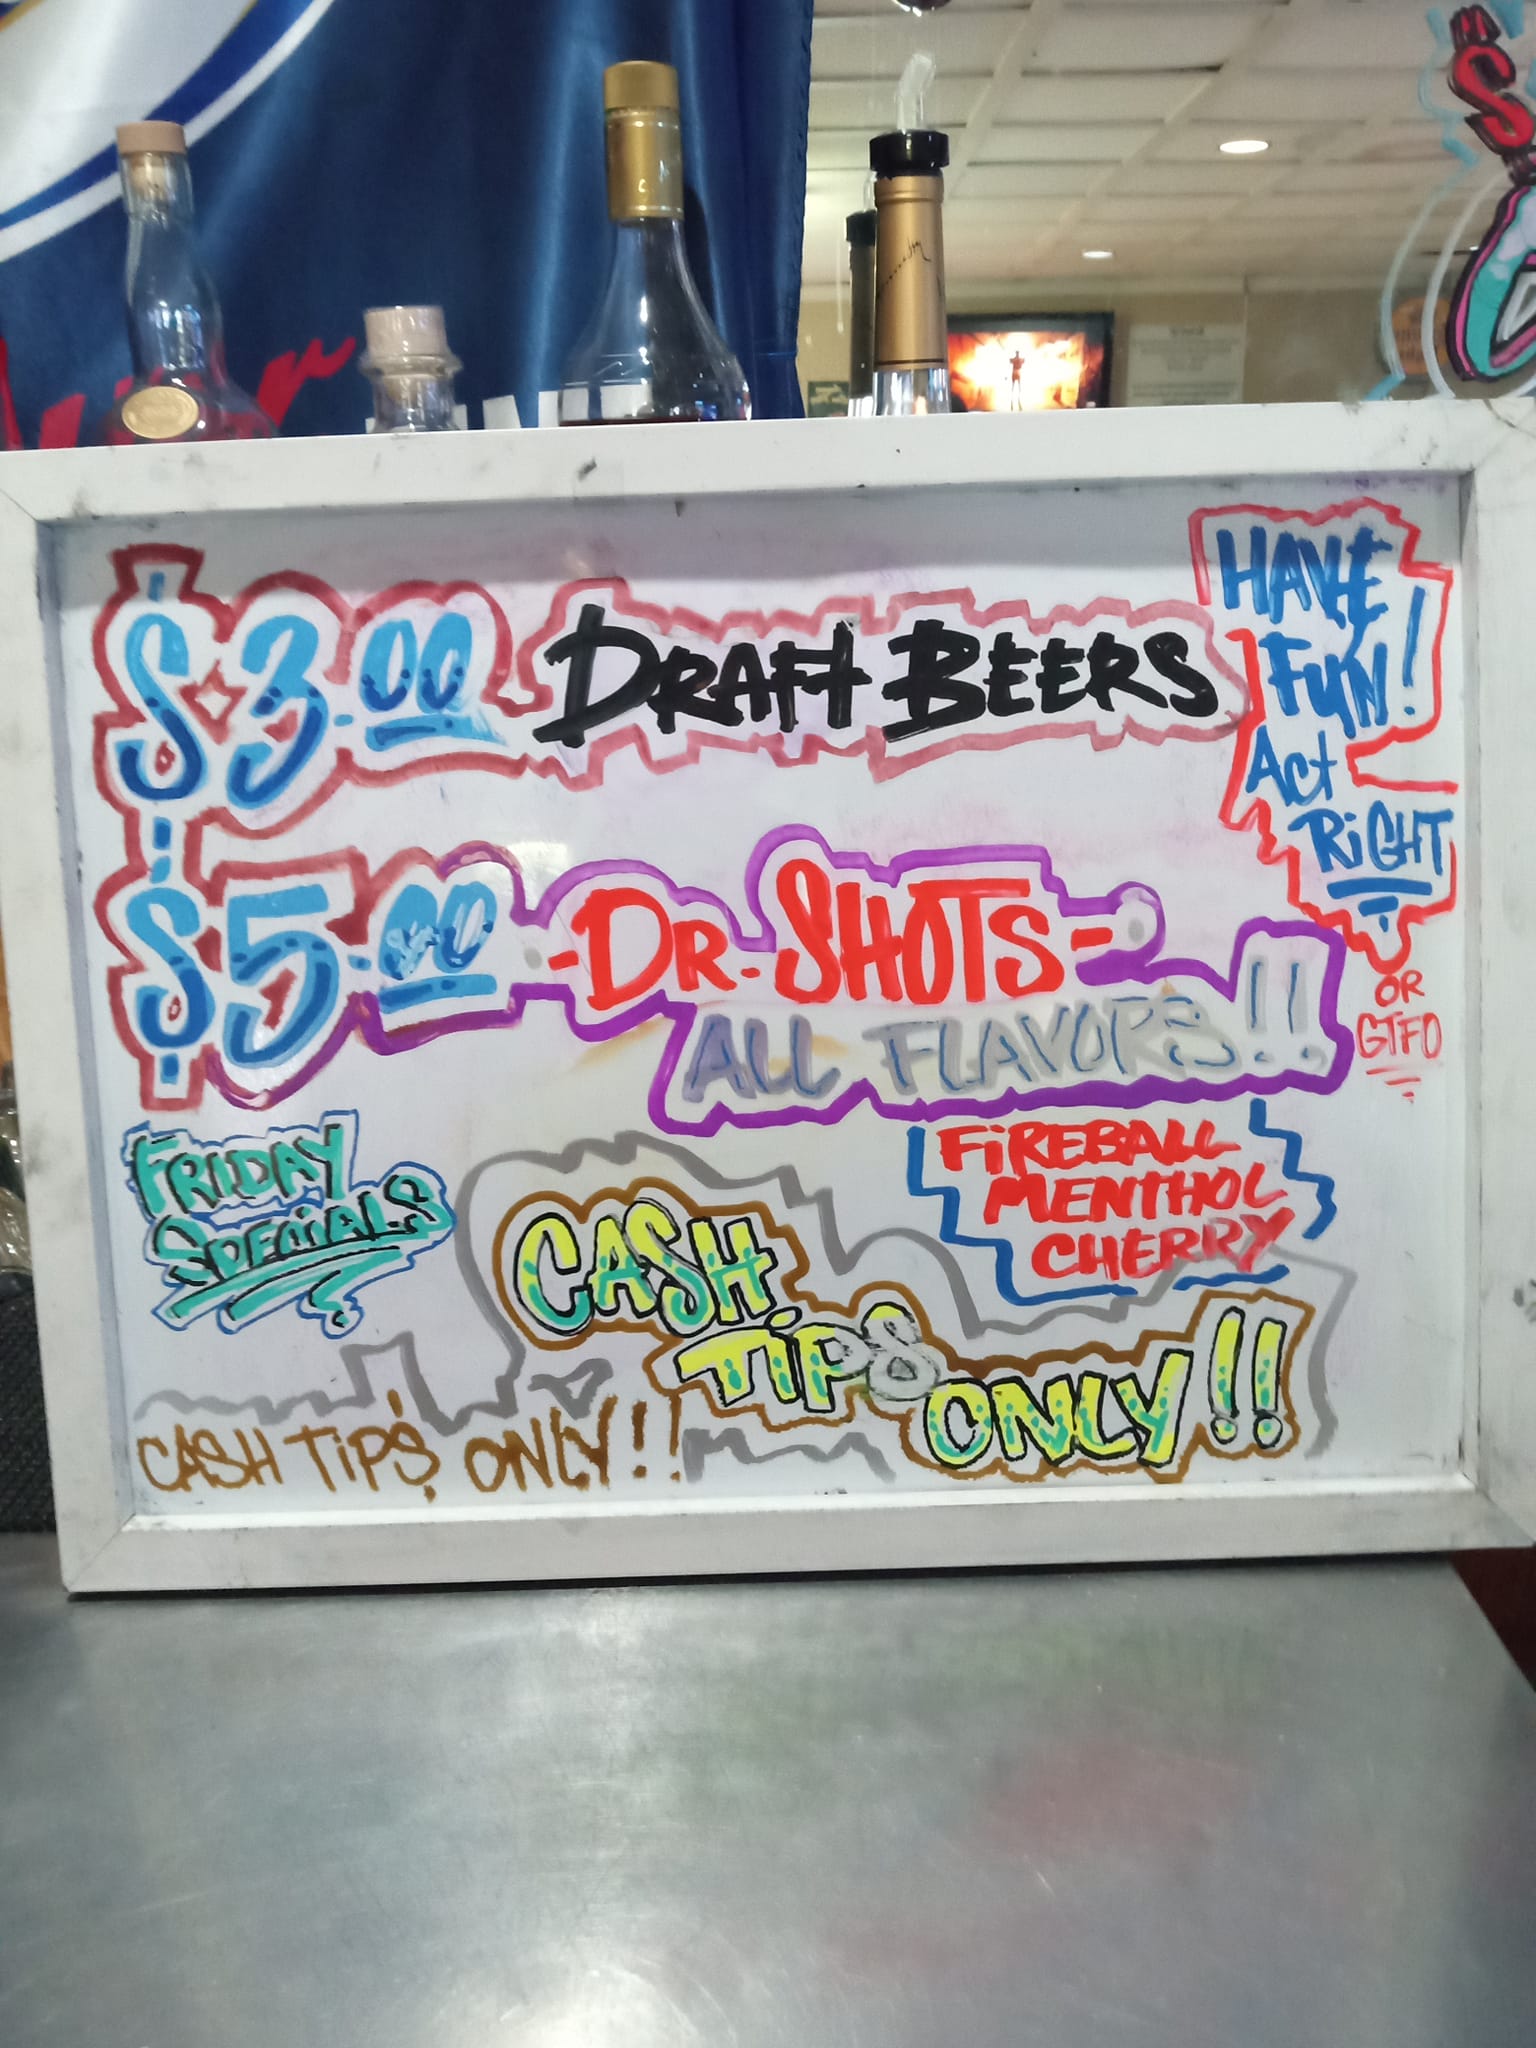 $3.00 DRAFT BEERS
HAVE
FUN!
Act
RiGHT
OR
GTFO
$5.00 -DR. SHOTS-
ALL FLAVORS!!
FiREBALL
MENTHOL
CHERRY
FRIDAY
SPECiALS
CASH
TiPS
ONLY!!
CASH TiPS ONLY!!